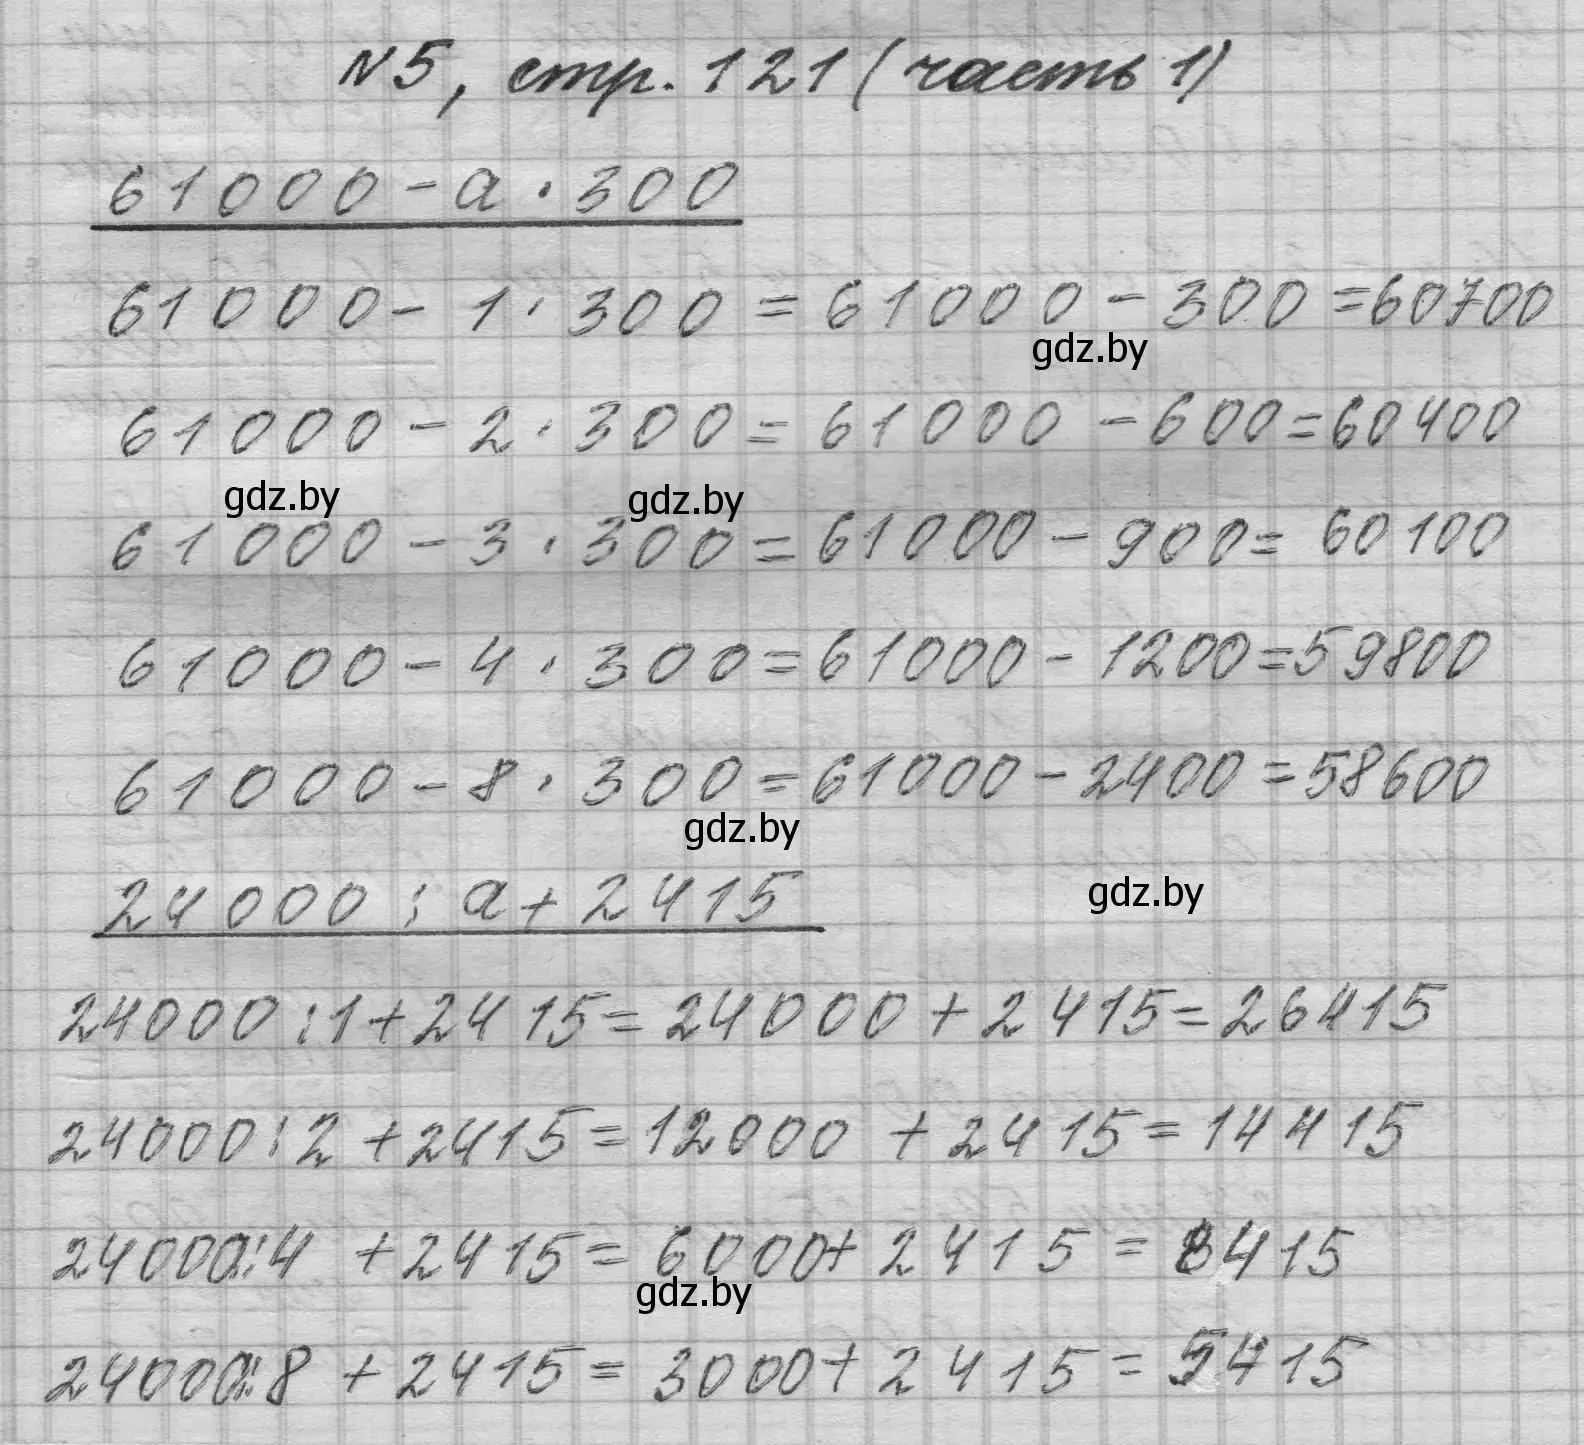 N5, стр. 121 (часть 1)
61000 - a · 300
61000 - 1 · 300 = 61000 - 300 = 60700
gdz.by
61000 - 2 · 300 = 61000 - 600 = 60400
gdz.by gdz.by
61000 - 3 · 300 = 61000 - 900 = 60100
61000 - 4 · 300 = 61000 - 1200 = 59800
61000 - 8 · 300 = 61000 - 2400 = 58600
gdz.by
24000 : a + 2415
gdz.by
24000 : 1 + 2415 = 24000 + 2415 = 26415
24000 : 2 + 2415 = 12000 + 2415 = 14415
24000 : 4 + 2415 = 6000 + 2415 = 8415
gdz.by
24000 : 8 + 2415 = 3000 + 2415 = 5415